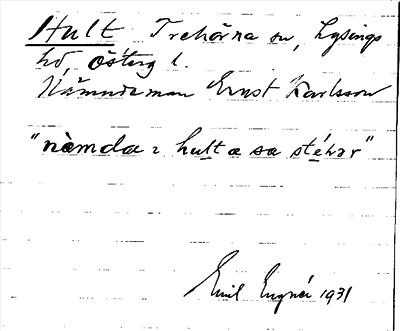 Hult Trehörna sn, Lysings
hd, Österg l.
Nämndeman Ernst Karlsson
"nàmda i hult æ sa stéhər"
Emil Engnér 1931